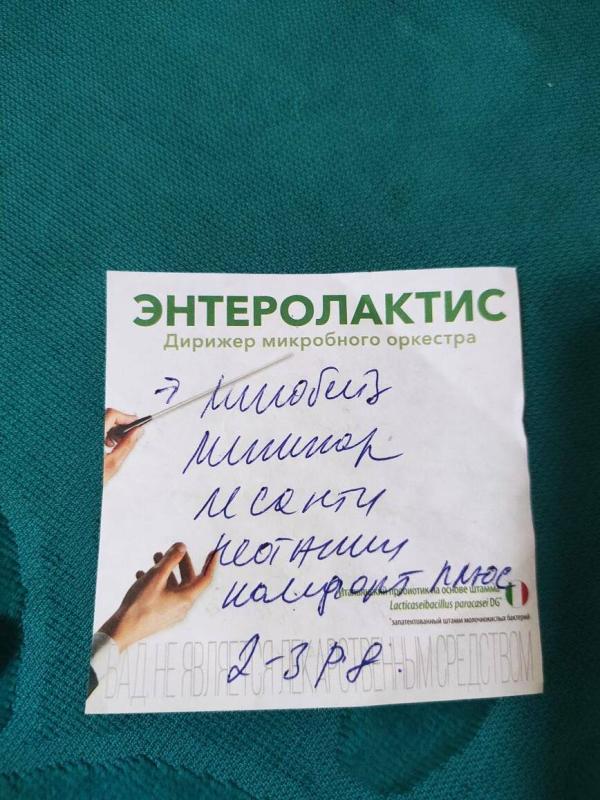 ЭНТЕРОЛАКТИС
Дирижер микробного оркестра
→
и санти
неотанин
комфорт плюс
пробиотик на основе штамма
Lacticaseibacillus paracasei DG*
*запатентованный штамм молочнокислых бактерий
2-3 р д.
БАД. НЕ ЯВЛЯЕТСЯ ЛЕКАРСТВЕННЫМ СРЕДСТВОМ